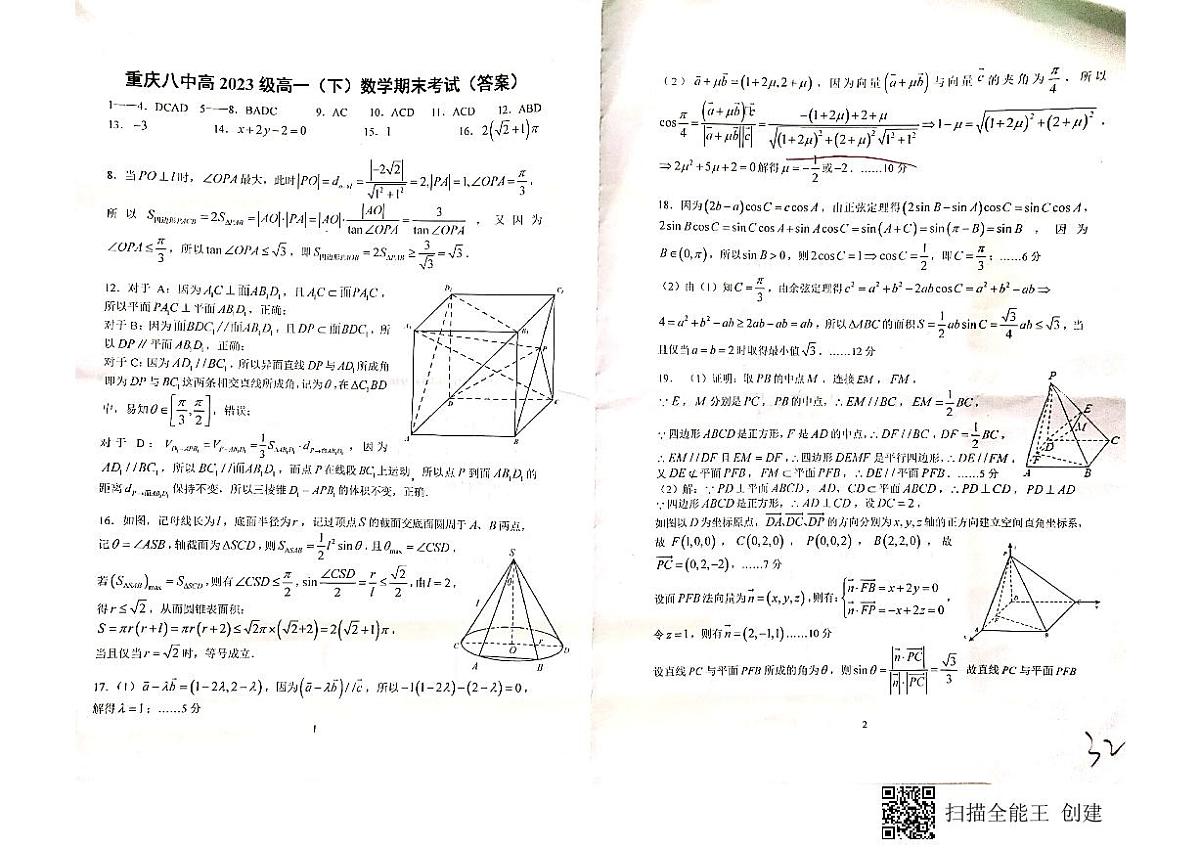 重庆八中高 2023 级高一（下）数学期末考试（答案）
1——4．DCAD 5——8．BADC 9．AC 10．ACD 11．ACD 12．ABD
13．-3 14．x+2y-2=0 15．1 16．2(√2+1)π
8．当PO⊥l时，∠OPA最大，此时|PO|=d_{o-l}=|-2√2|/√(1²+1²)=2,|PA|=1,∠OPA=π/3，
所以 S_{四边形PACB}=2S_{ΔPAB}=|AO|·|PA|=|AO|·|AO|/tan∠OPA=3/tan∠OPA，又因为
∠OPA≤π/3，所以tan∠OPA≤√3，即S_{四边形PAOB}=2S_{ΔPAB}≥3/√3=√3．
12．对于 A：因为A₁C⊥面AB₁D₁，且A₁C⊂面PA₁C，
所以平面PA₁C⊥平面AB₁D₁，正确；
对于B：因为面BDC₁//面AB₁D₁，且DP⊂面BDC₁，所
以DP∥平面AB₁D₁，正确；
对于C：因为AD₁//BC₁，所以异面直线DP与AD₁所成角
即为DP与BC₁这两条相交直线所成角，记为θ，在ΔC₁BD
中，易知θ∈[π/3,π/2]，错误；
对于 D：V_{D₁-APB₁}=V_{P-AB₁D₁}=1/3 S_{ΔAB₁D₁}·d_{P→面AB₁D₁}，因为
AD₁//BC₁，所以BC₁//面AB₁D₁，而点P在线段BC₁上运动，所以点P到面AB₁D₁的
距离d_{P→面AB₁D₁}保持不变，所以三棱锥D₁-APB₁的体积不变，正确．
16．如图，记母线长为l，底面半径为r，记过顶点S的截面交底面圆周于A、B两点，
记θ=∠ASB，轴截面为ΔSCD，则S_{ΔSAB}=1/2 l² sinθ，且θ_{max}=∠CSD，
若(S_{ΔSAB})_{max}=S_{ΔSCD}，则有∠CSD≤π/2，sin ∠CSD/2=r/l≤√2/2，由l=2，
得r≤√2，从而圆锥表面积：
S=πr(r+l)=πr(r+2)≤√2π×(√2+2)=2(√2+1)π，
当且仅当r=√2时，等号成立．
17．（1）a-λb=(1-2λ,2-λ)，因为(a-λb)//c，所以-1(1-2λ)-(2-λ)=0，
解得λ=1；……5分
1
（2）a+μb=(1+2μ,2+μ)，因为向量(a+μb)与向量c的夹角为π/4，所以
cos π/4=(a+μb)·c/|a+μb||c|=-(1+2μ)+2+μ/√((1+2μ)²+(2+μ)²)√(1²+1²)⇒1-μ=√((1+2μ)²+(2+μ)²)，
⇒2μ²+5μ+2=0解得μ=-1/2或-2．……10分
18．因为(2b-a)cosC=c cosA，由正弦定理得(2sinB-sinA)cosC=sinCcosA，
2sinBcosC=sinCcosA+sinAcosC=sin(A+C)=sin(π-B)=sinB，因为
B∈(0,π)，所以sinB>0，则2cosC=1⇒cosC=1/2，即C=π/3；……6分
（2）由（1）知C=π/3，由余弦定理得c²=a²+b²-2abcosC=a²+b²-ab⇒
4=a²+b²-ab≥2ab-ab=ab，所以ΔABC的面积S=1/2 absinC=√3/4 ab≤√3，当
且仅当a=b=2时取得最小值√3．……12分
19．（1）证明：取PB的中点M，连接EM，FM，
∵E，M分别是PC，PB的中点，∴EM//BC，EM=1/2 BC，
∵四边形ABCD是正方形，F是AD的中点，∴DF//BC，DF=1/2 BC，
∴EM//DF且EM=DF，∴四边形DEMF是平行四边形，∴DE//FM，
又DE⊄平面PFB，FM⊂平面PFB，∴DE//平面PFB．……5分
（2）解：∵PD⊥平面ABCD，AD、CD⊂平面ABCD，∴PD⊥CD，PD⊥AD
∵四边形ABCD是正方形，∴AD⊥CD，设DC=2，
如图以D为坐标原点，DA,DC,DP的方向分别为x,y,z轴的正方向建立空间直角坐标系，
故 F(1,0,0)，C(0,2,0)，P(0,0,2)，B(2,2,0)，故
PC=(0,2,-2)，……7分
设面PFB法向量为n=(x,y,z)，则有：{n·FB=x+2y=0 n·FP=-x+2z=0，
令z=1，则有n=(2,-1,1)……10分
设直线PC与平面PFB所成的角为θ，则sinθ=|n·PC|/|n|·|PC|=√3/3 故直线PC与平面PFB
2
32
扫描全能王 创建